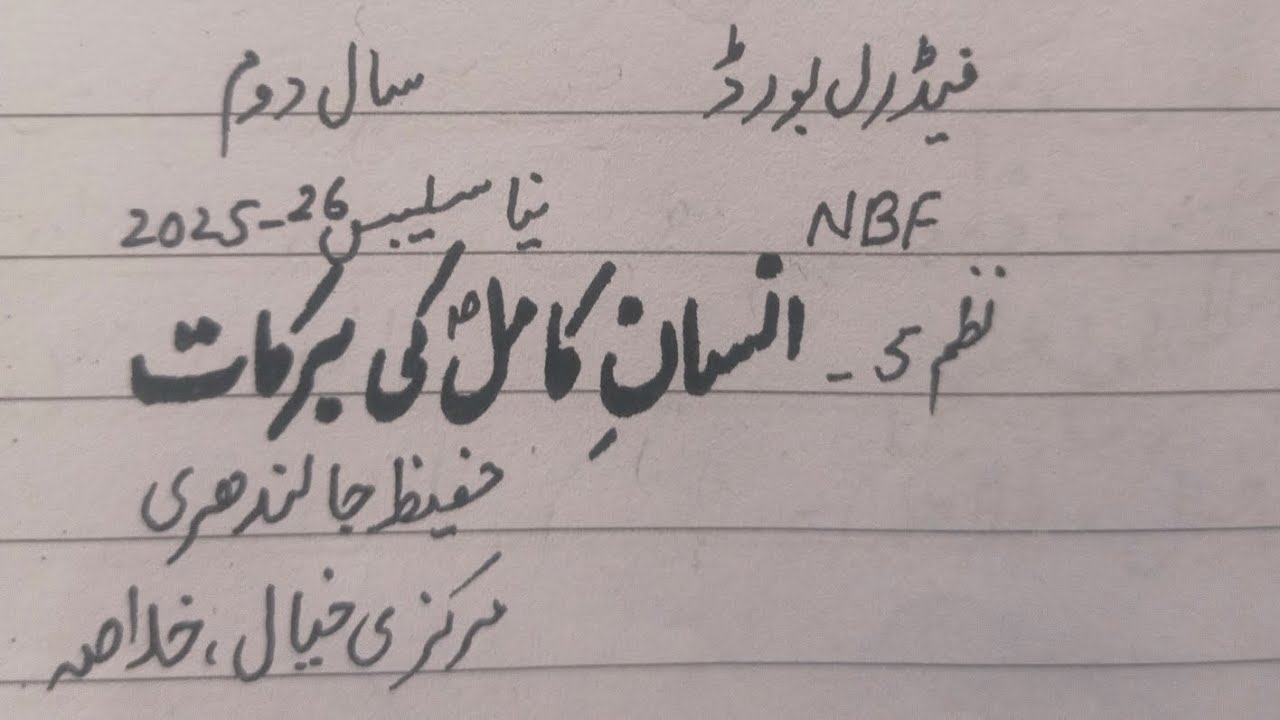 فیڈرل بورڈ سال دوم
NBF نیا سلیبس 2025-26
نظم 5 - انسانِ کاملؐ کی برکات
حفیظ جالندھری
مرکزی خیال، خلاصہ